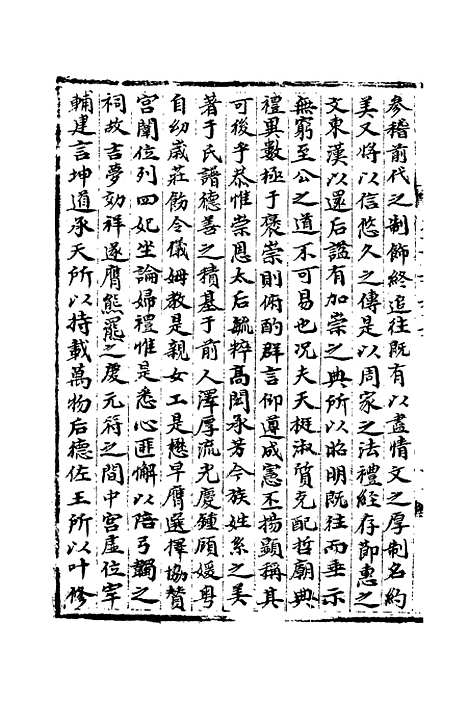 參稽前代之制飾終追往既有以盡情文之厚制名約
美又將以信悠久之傳是以周家之法禮經存節惠之
文東漢以還后諡有加崇之典所以昭明既往而垂示
無窮至公之道不可易也况夫天挺淑質克配哲廟典
禮異數極于褒崇則俯酌群言仰遵成憲丕揚顯稱其
可後乎恭惟崇恩太后毓粹高閎承芳令族姓系之美
著于氏譜德善之積基于前人澤厚流光慶鍾碩媛粤
自幼歳莊飭令儀姆教是親女工是懋早膺選擇協賛
宮闈位列四妃坐論婦禮惟是悉心匪懈以陪弓韣之
祠故吉夢効祥遂膺熊羆之慶元符之間中宮虛位宰
輔建言坤道承天所以持載萬物后德佐王所以叶修